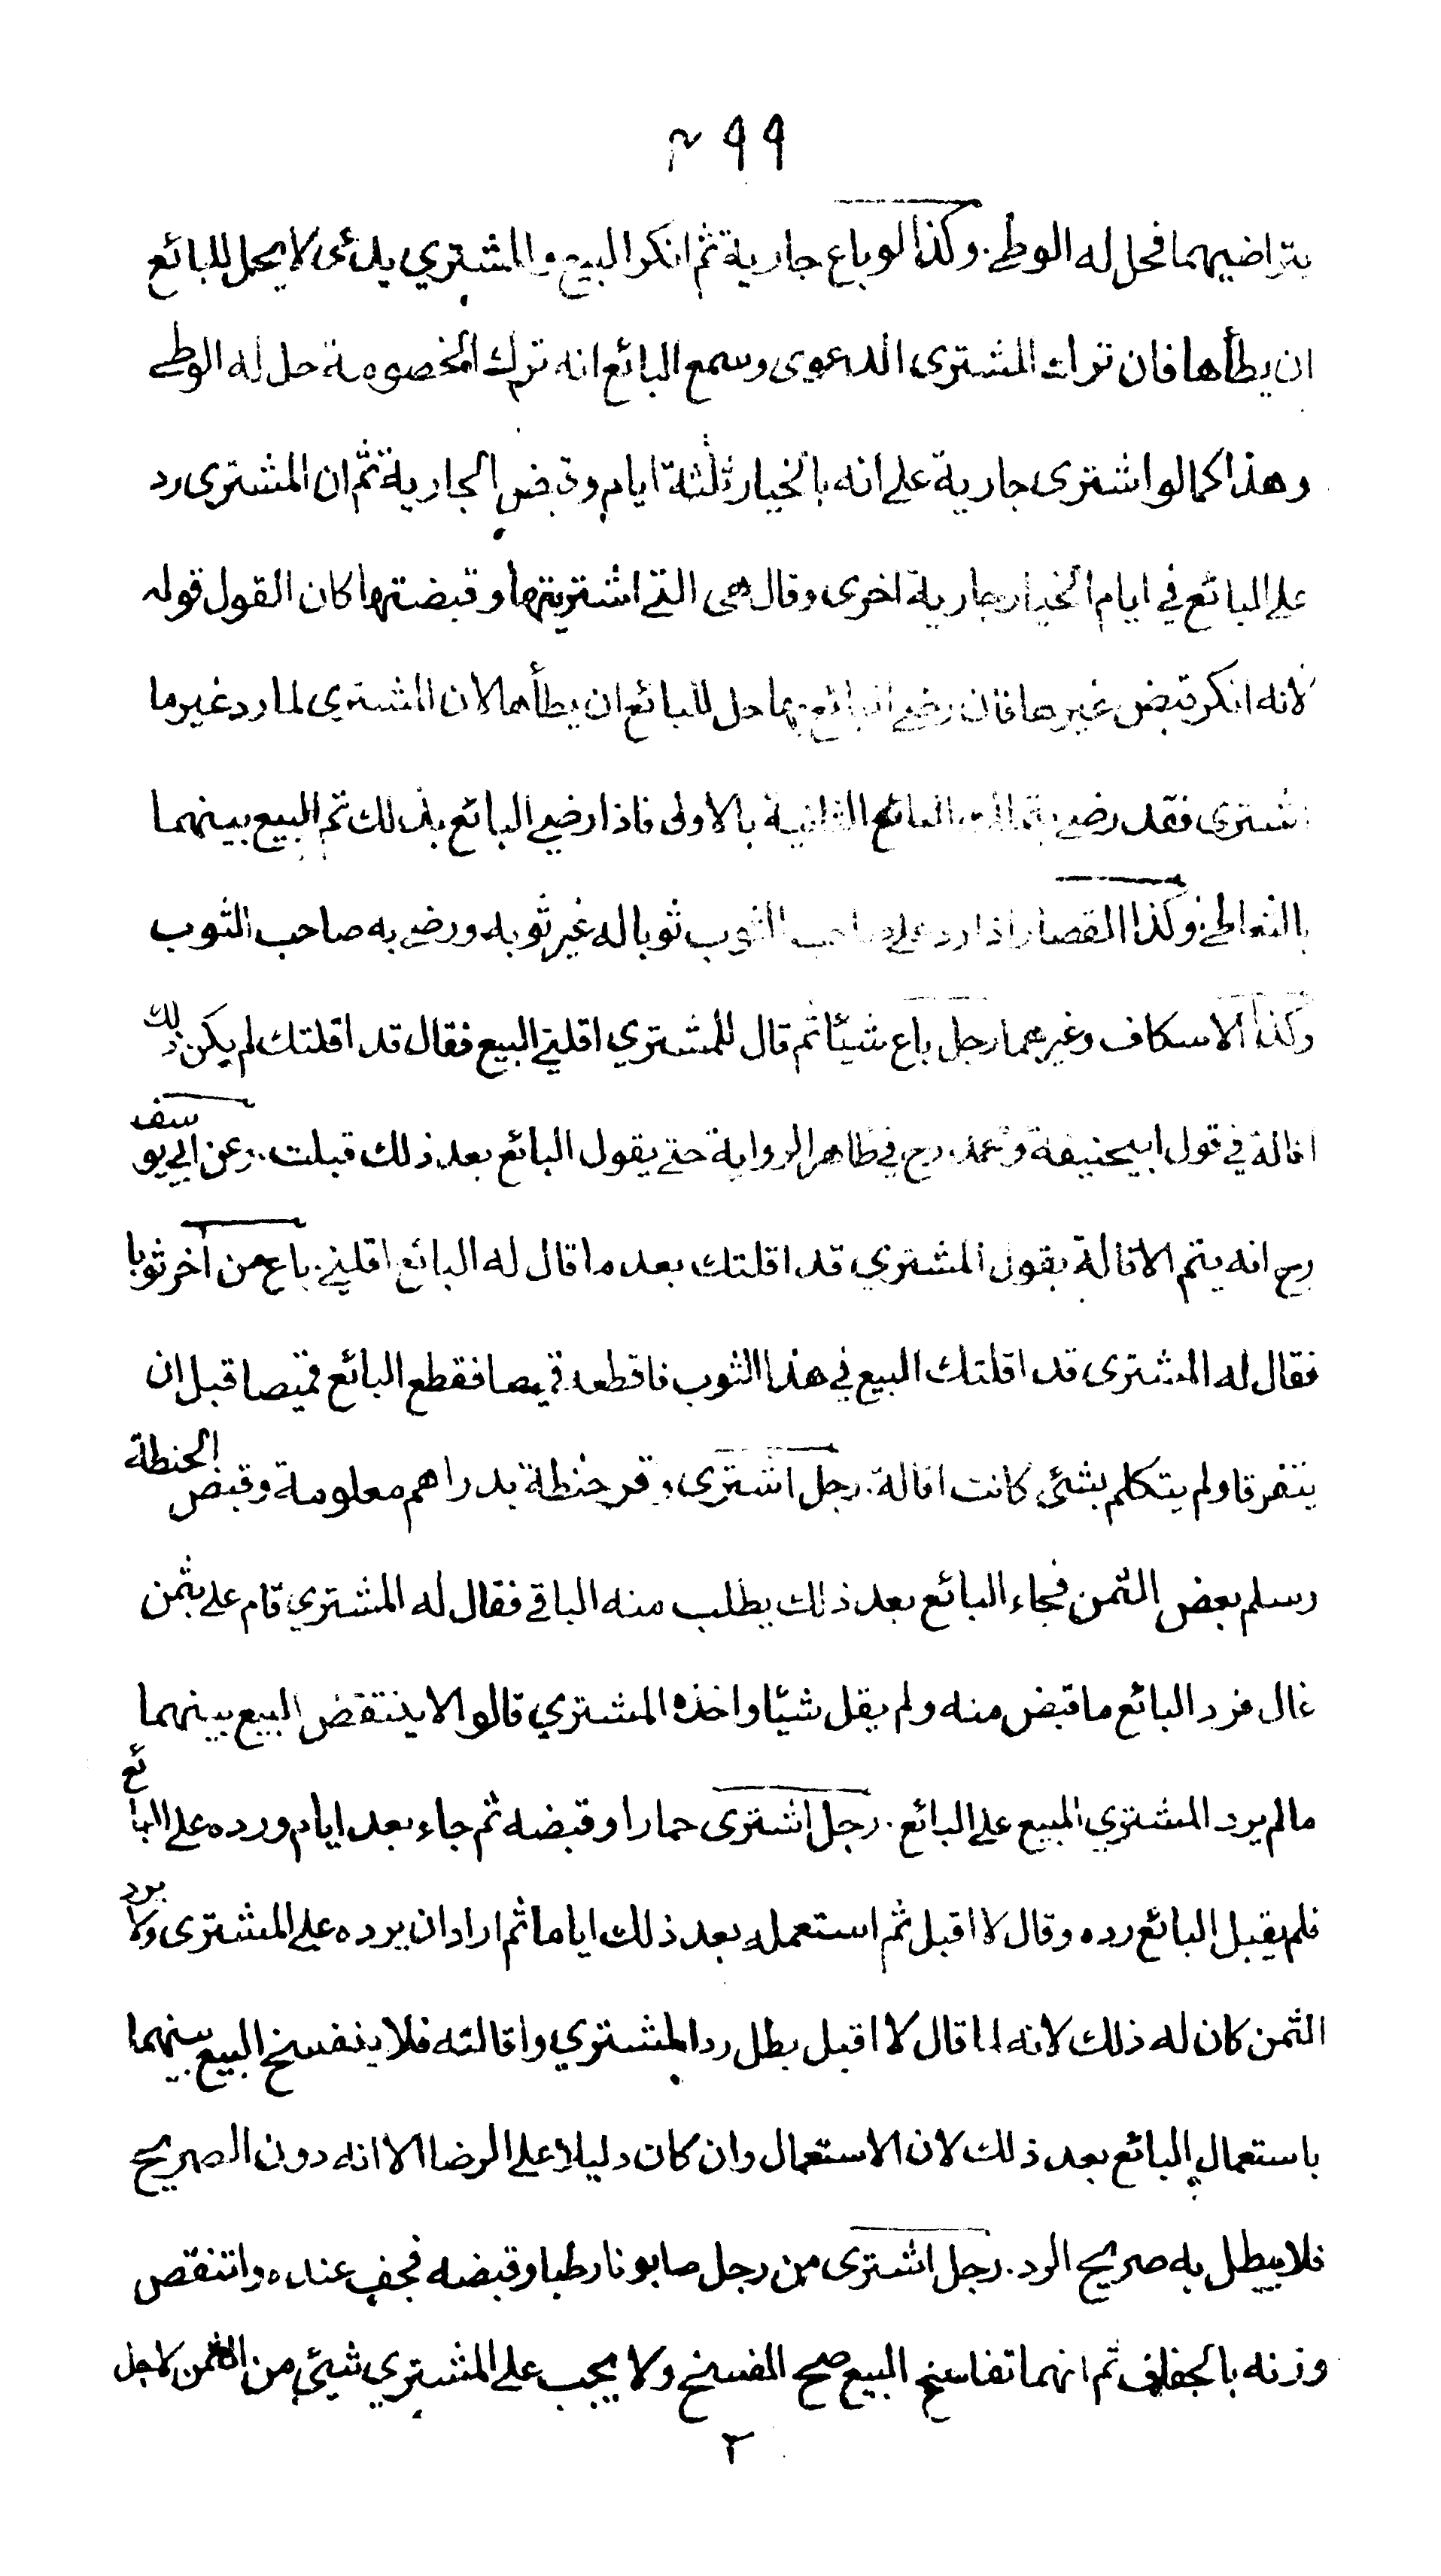 ٢٩٩
بتراضيهما فحل له الوطئ. وكذا لو باع جارية ثم انكر البيع والمشتري يدعى لا يحل للبائع
ان يطأها فان ترك المشترى الدعوى وسمع البائع انه ترك الخصومة حل له الوطئ
وهذا كما لو اشترى جارية على انه بالخيار ثلثة ايام وقبض الجارية ثم ان المشترى رد
على البائع في ايام الخيار جارية اخرى وقال هى التي اشتريتها وقبضتها كان القول قوله
لانه انكر قبض غيرها فان رضي البائع بها حل للبائع ان يطأها لان المشتري لما رد غير ما
اشترى فقد رضي البائع الثانية بالاولى فاذا رضي البائع بذلك تم البيع بينهما
بالتعاطي وكذا القصار اذا رد على صاحب الثوب ثوبا له غير ثوبه ورضي به صاحب الثوب
وكذا الاسكاف وغيرهما رجل باع شيئا ثم قال للمشتري اقلني البيع فقال قد اقلتك لم يكن ذلك
اقالة في قول ابيحنيفة ومحمد رح في ظاهر الرواية حتى يقول البائع بعد ذلك قبلت. وعن ابي يوسف
رح انه يتم الاقالة بقول المشتري قد اقلتك بعد ما قال له البائع اقلني. باع من آخر ثوبا
فقال له المشترى قد اقلتك البيع في هذا الثوب فاقطعه قميصا فقطع البائع قميصا قبل ان
يتفرقا ولم يتكلم بشئ كانت اقالة. رجل اشترى وقر حنطة بدراهم معلومة وقبض الحنطة
وسلم بعض الثمن فجاء البائع بعد ذلك يطلب منه الباقي فقال له المشتري قام علي بثمن
غال فرد البائع ما قبض منه ولم يقل شيئا واخذه المشتري قالوا لا ينتقض البيع بينهما
مالم يرد المشتري المبيع على البائع. رجل اشترى حمارا وقبضه ثم جاء بعد ايام ورده على البائع
فلم يقبل البائع رده وقال لا اقبل ثم استعمله بعد ذلك اياما ثم اراد ان يرده على المشترى ولا يرد
الثمن كان له ذلك لانه لما قال لا اقبل بطل رد المشتري واقالته فلا ينفسخ البيع بينهما
باستعمال البائع بعد ذلك لان الاستعمال وان كان دليلا على الرضا الا انه دون الصريح
فلا يبطل به صريح الرد. رجل اشترى من رجل صابونا رطبا وقبضه فجف عنده وانتقص
وزنه بالجفاف ثم انهما تفاسخ البيع صح الفسخ ولا يجب على المشتري شيئ من الثمن لاجل
٢